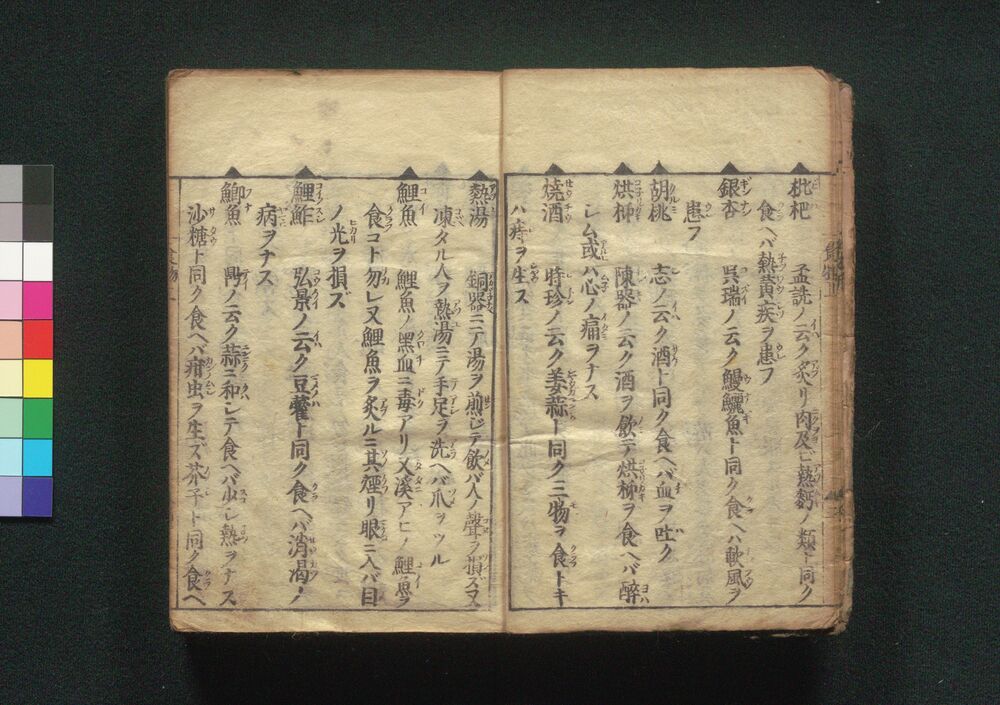 枇杷 孟詵ノ云ク炙リ肉及ビ熱麪ノ類ト同ク
食ヘバ熱黄疾ヲ患フ
銀杏 呉瑞ノ云ク鰻鱺魚ト同ク食ヘハ軟風ヲ
患フ
胡桃 志ノ云ク酒ト同ク食ヘバ血ヲ吐ク
烘柿 陳器ノ云ク酒ヲ飲テ烘柿ヲ食ヘバ醉
レム或ハ心ノ痛ヲナス
燒酒 時珍ノ云ク姜蒜ト同ク三物ヲ食トキ
ハ痔ヲ生ス
熱湯 銅器ニテ湯ヲ煎ジテ飲バ人ノ聲ヲ損ズ又
凍タル人ヲ熱湯ニテ手足ヲ洗ヘバ爪ヲツル
鯉魚 鯉魚ノ黑血ニ毒アリ又溪アヒノ鯉魚ヲ
食コト勿レ又鯉魚ヲ炙ルニ其煙リ眼ニ入バ目
ノ光ヲ損ズ
鯉鮓 弘景ノ云ク豆藿ト同ク食ヘバ消渇ノ
病ヲナス
鯽魚 鼎ノ云ク蒜ニ和シテ食ヘバ少シ熱ヲナス
沙糖ト同ク食ヘバ疳虫ヲ生ズ芥子ト同ク食ヘ